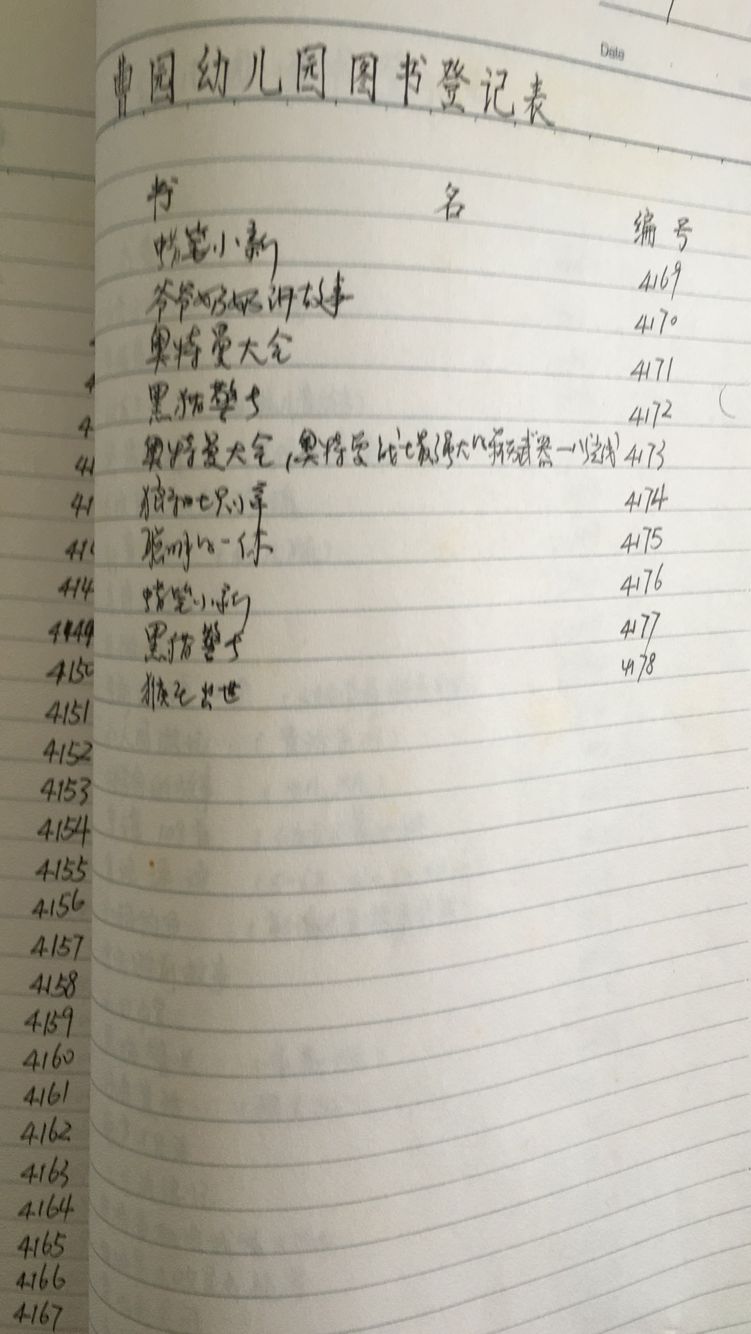 Date
曹园幼儿园图书登记表
书 名 编号
蜡笔小新 4169
爷爷奶奶讲故事 4170
奥特曼大全 4171
黑猫警长 4172
奥特曼大全,奥特曼战士最强大的 武器一 4173
狼和七只小羊 4174
聪明的一休 4175
蜡笔小新 4176
黑猫警长 4177
猴王出世 4178
4149
4150
4151
4152
4153
4154
4155
4156
4157
4158
4159
4160
4161
4162
4163
4164
4165
4166
4167